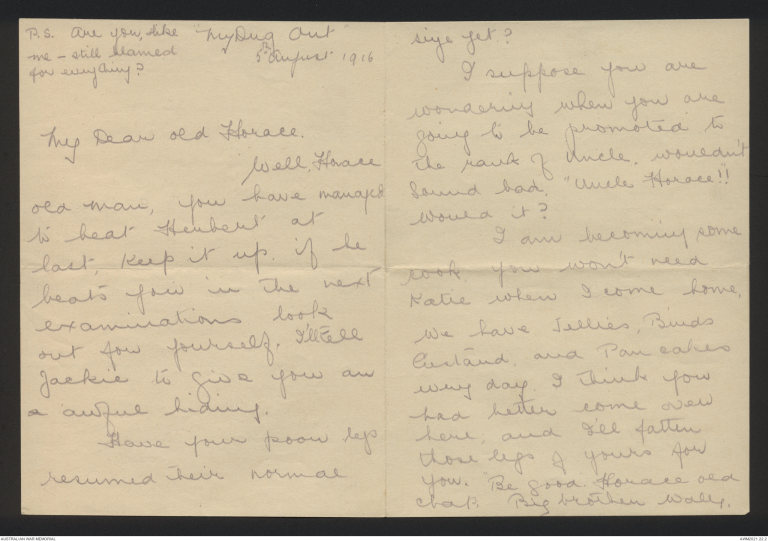 P.S. Are you, like
me - still blamed
for everything?
"My Dug Out"
5th August 1916
My Dear old Horace.
Well, Horace
old man, you have managed
to beat Herbert at
last, Keep it up. if he
beats you in the next
examinations look
out for yourself. I'll tell
Jackie to give you an
a awful hiding.
Have your poor legs
resumed their normal
size yet?
I suppose you are
wondering when you are
going to be promoted to
the rank of Uncle. wouldn't
sound bad. "Uncle Horace"!!
would it?
I am becoming some
cook. you won't need
Katie when I come home.
We have Jellies, Birds
Custard, and Pan cakes
every day. I think you
had better come over
here, and I'll fatten
those legs of yours for
you. Be good Horace old
chap. Big brother Wally.
AUSTRALIAN WAR MEMORIAL